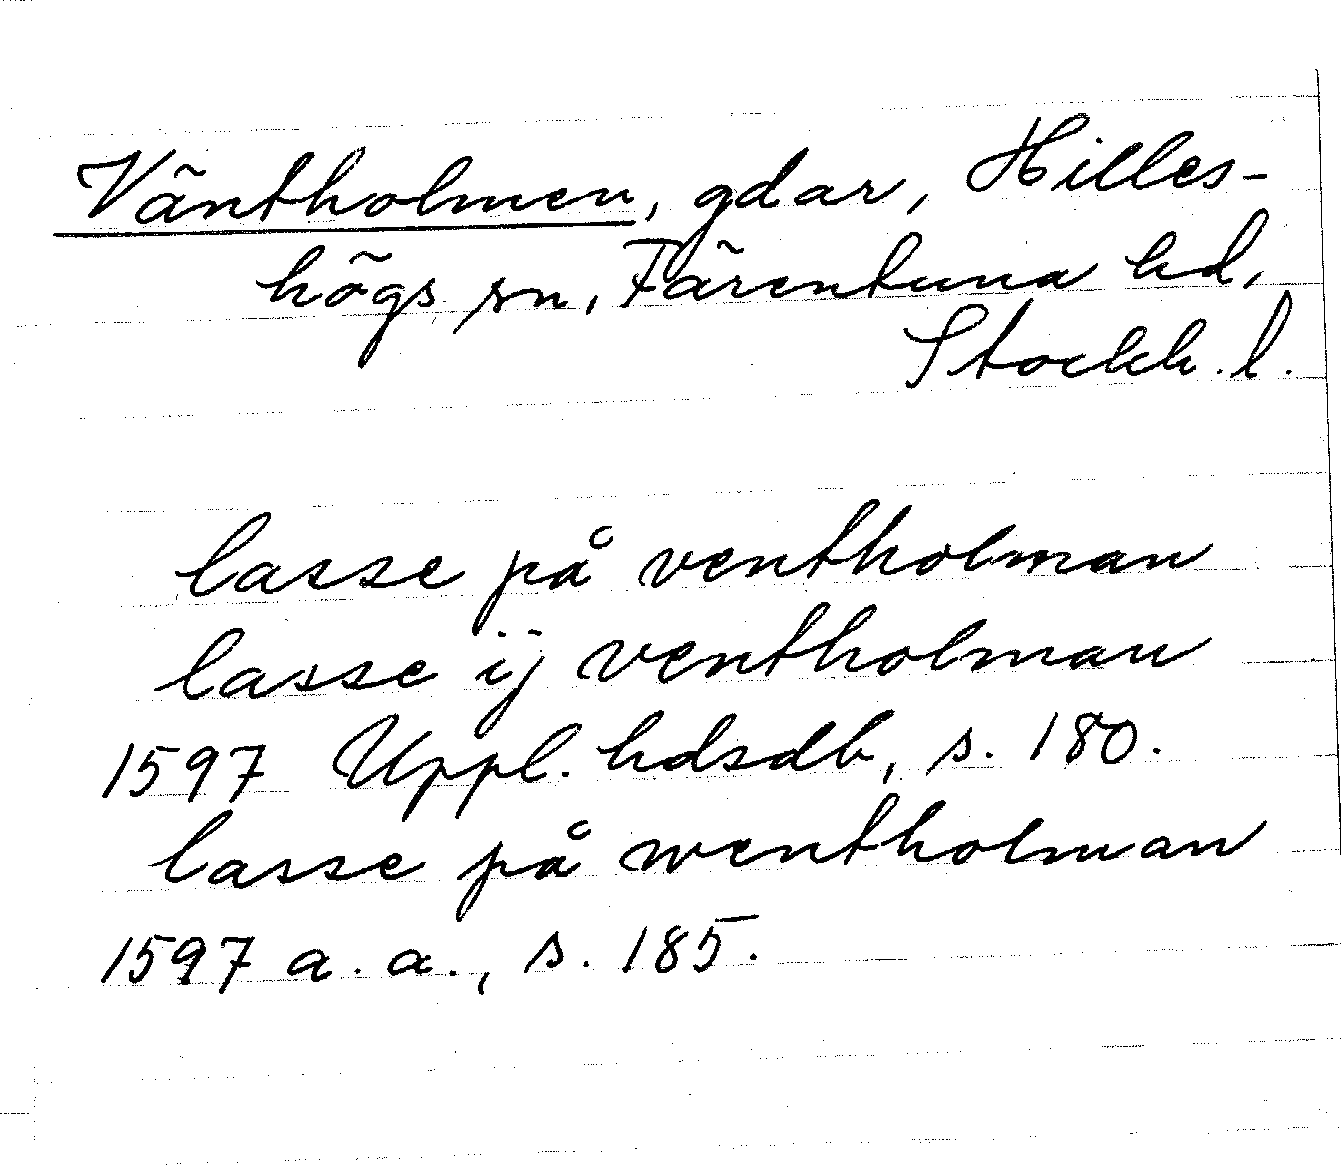 Väntholmen, gdar, Hilles-
högs sn, Färentuna hd,
Stockh. l.
lasse på ventholman
lasse ij ventholman
1597 Uppl. hdsdb, s. 180.
lasse på wentholman
1597 a. a., s. 185.